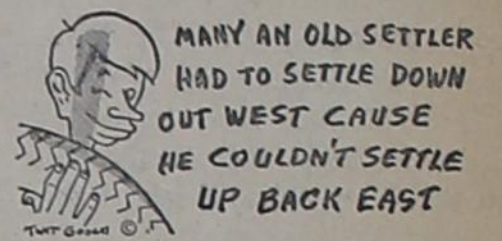 MANY AN OLD SETTLER
HAD TO SETTLE DOWN
OUT WEST CAUSE
HE COULDN'T SETTLE
UP BACK EAST
©